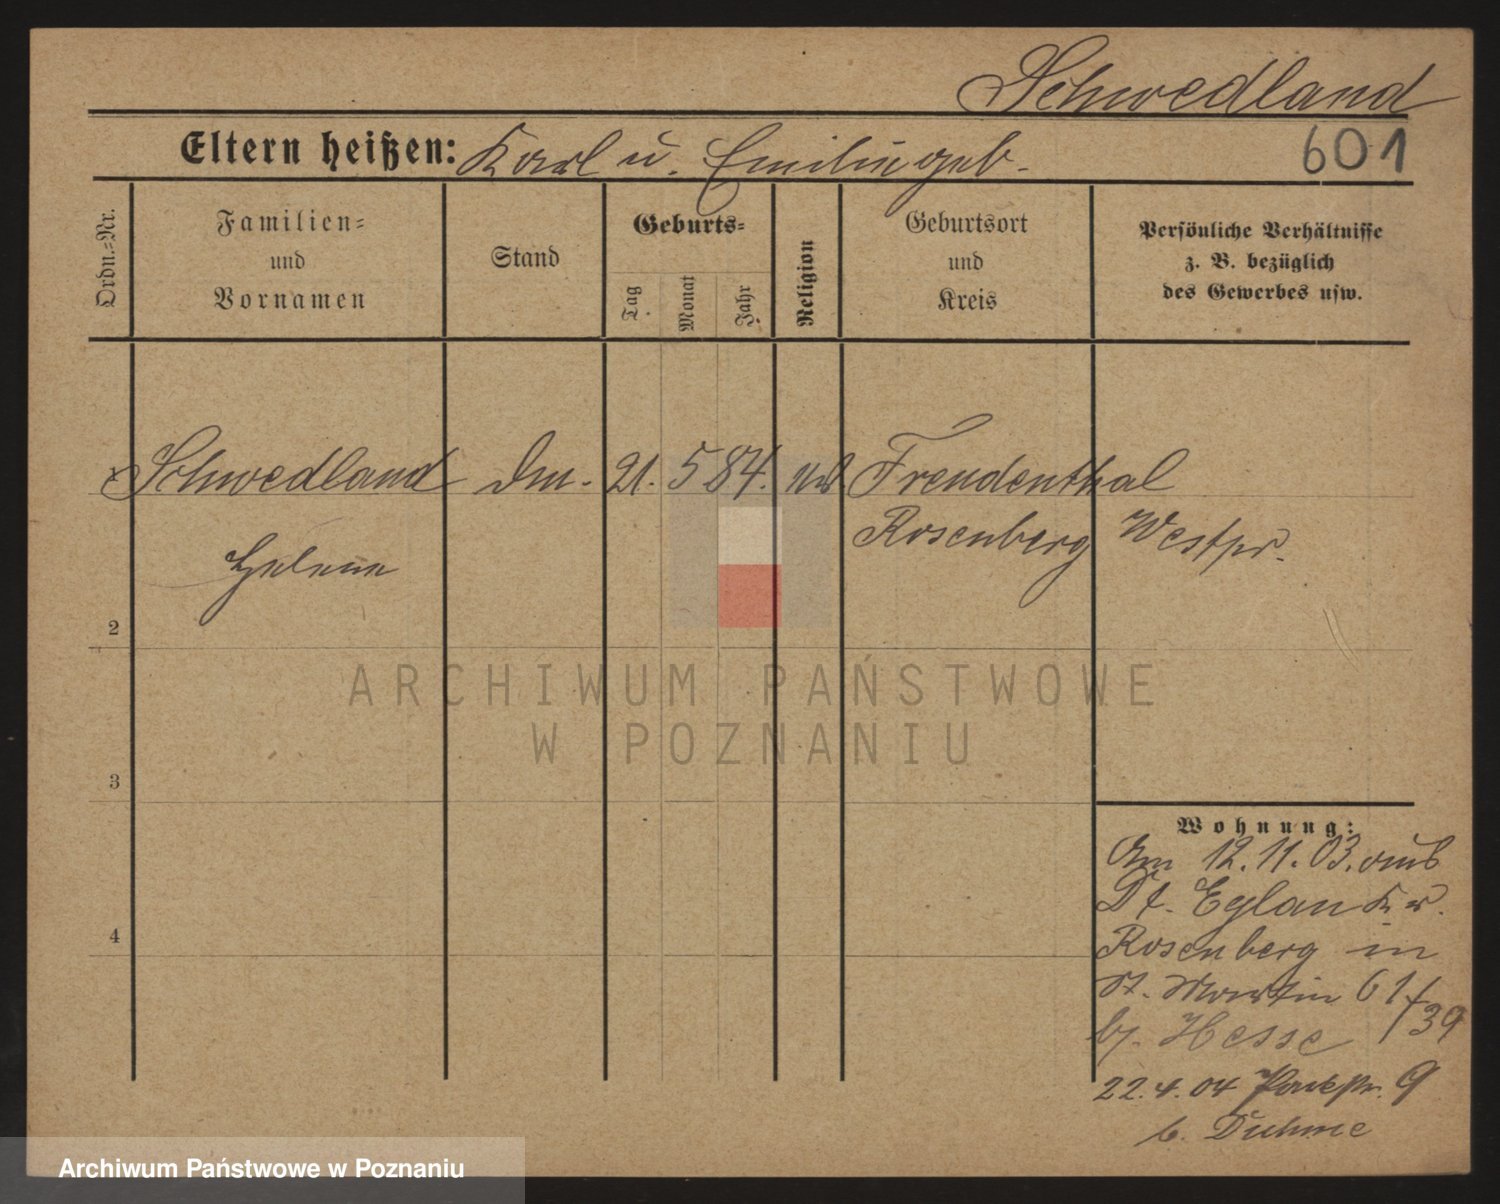 Schwedland
Eltern heißen: Karl u. Emilie geb.
601
Ordn.-Nr.
Familien-
und
Vornamen
Stand
Geburts-
Tag
Monat
Jahr
Religion
Geburtsort
und
Kreis
Persönliche Verhältnisse
z. B. bezüglich
des Gewerbes usw.
Schwedland
Helene
21. 5 84.
Freudenthal
Rosenberg Westpr.
2
3
4
Wohnung:
Am 12.11.03. aus
Dt. Eylau Kr.
Rosenberg in
St. Martin 61/39
bj. Hesse
22.4.04 Parkstr. 9
b. Duhme
ARCHIWUM PAŃSTWOWE
W POZNANIU
Archiwum Państwowe w Poznaniu